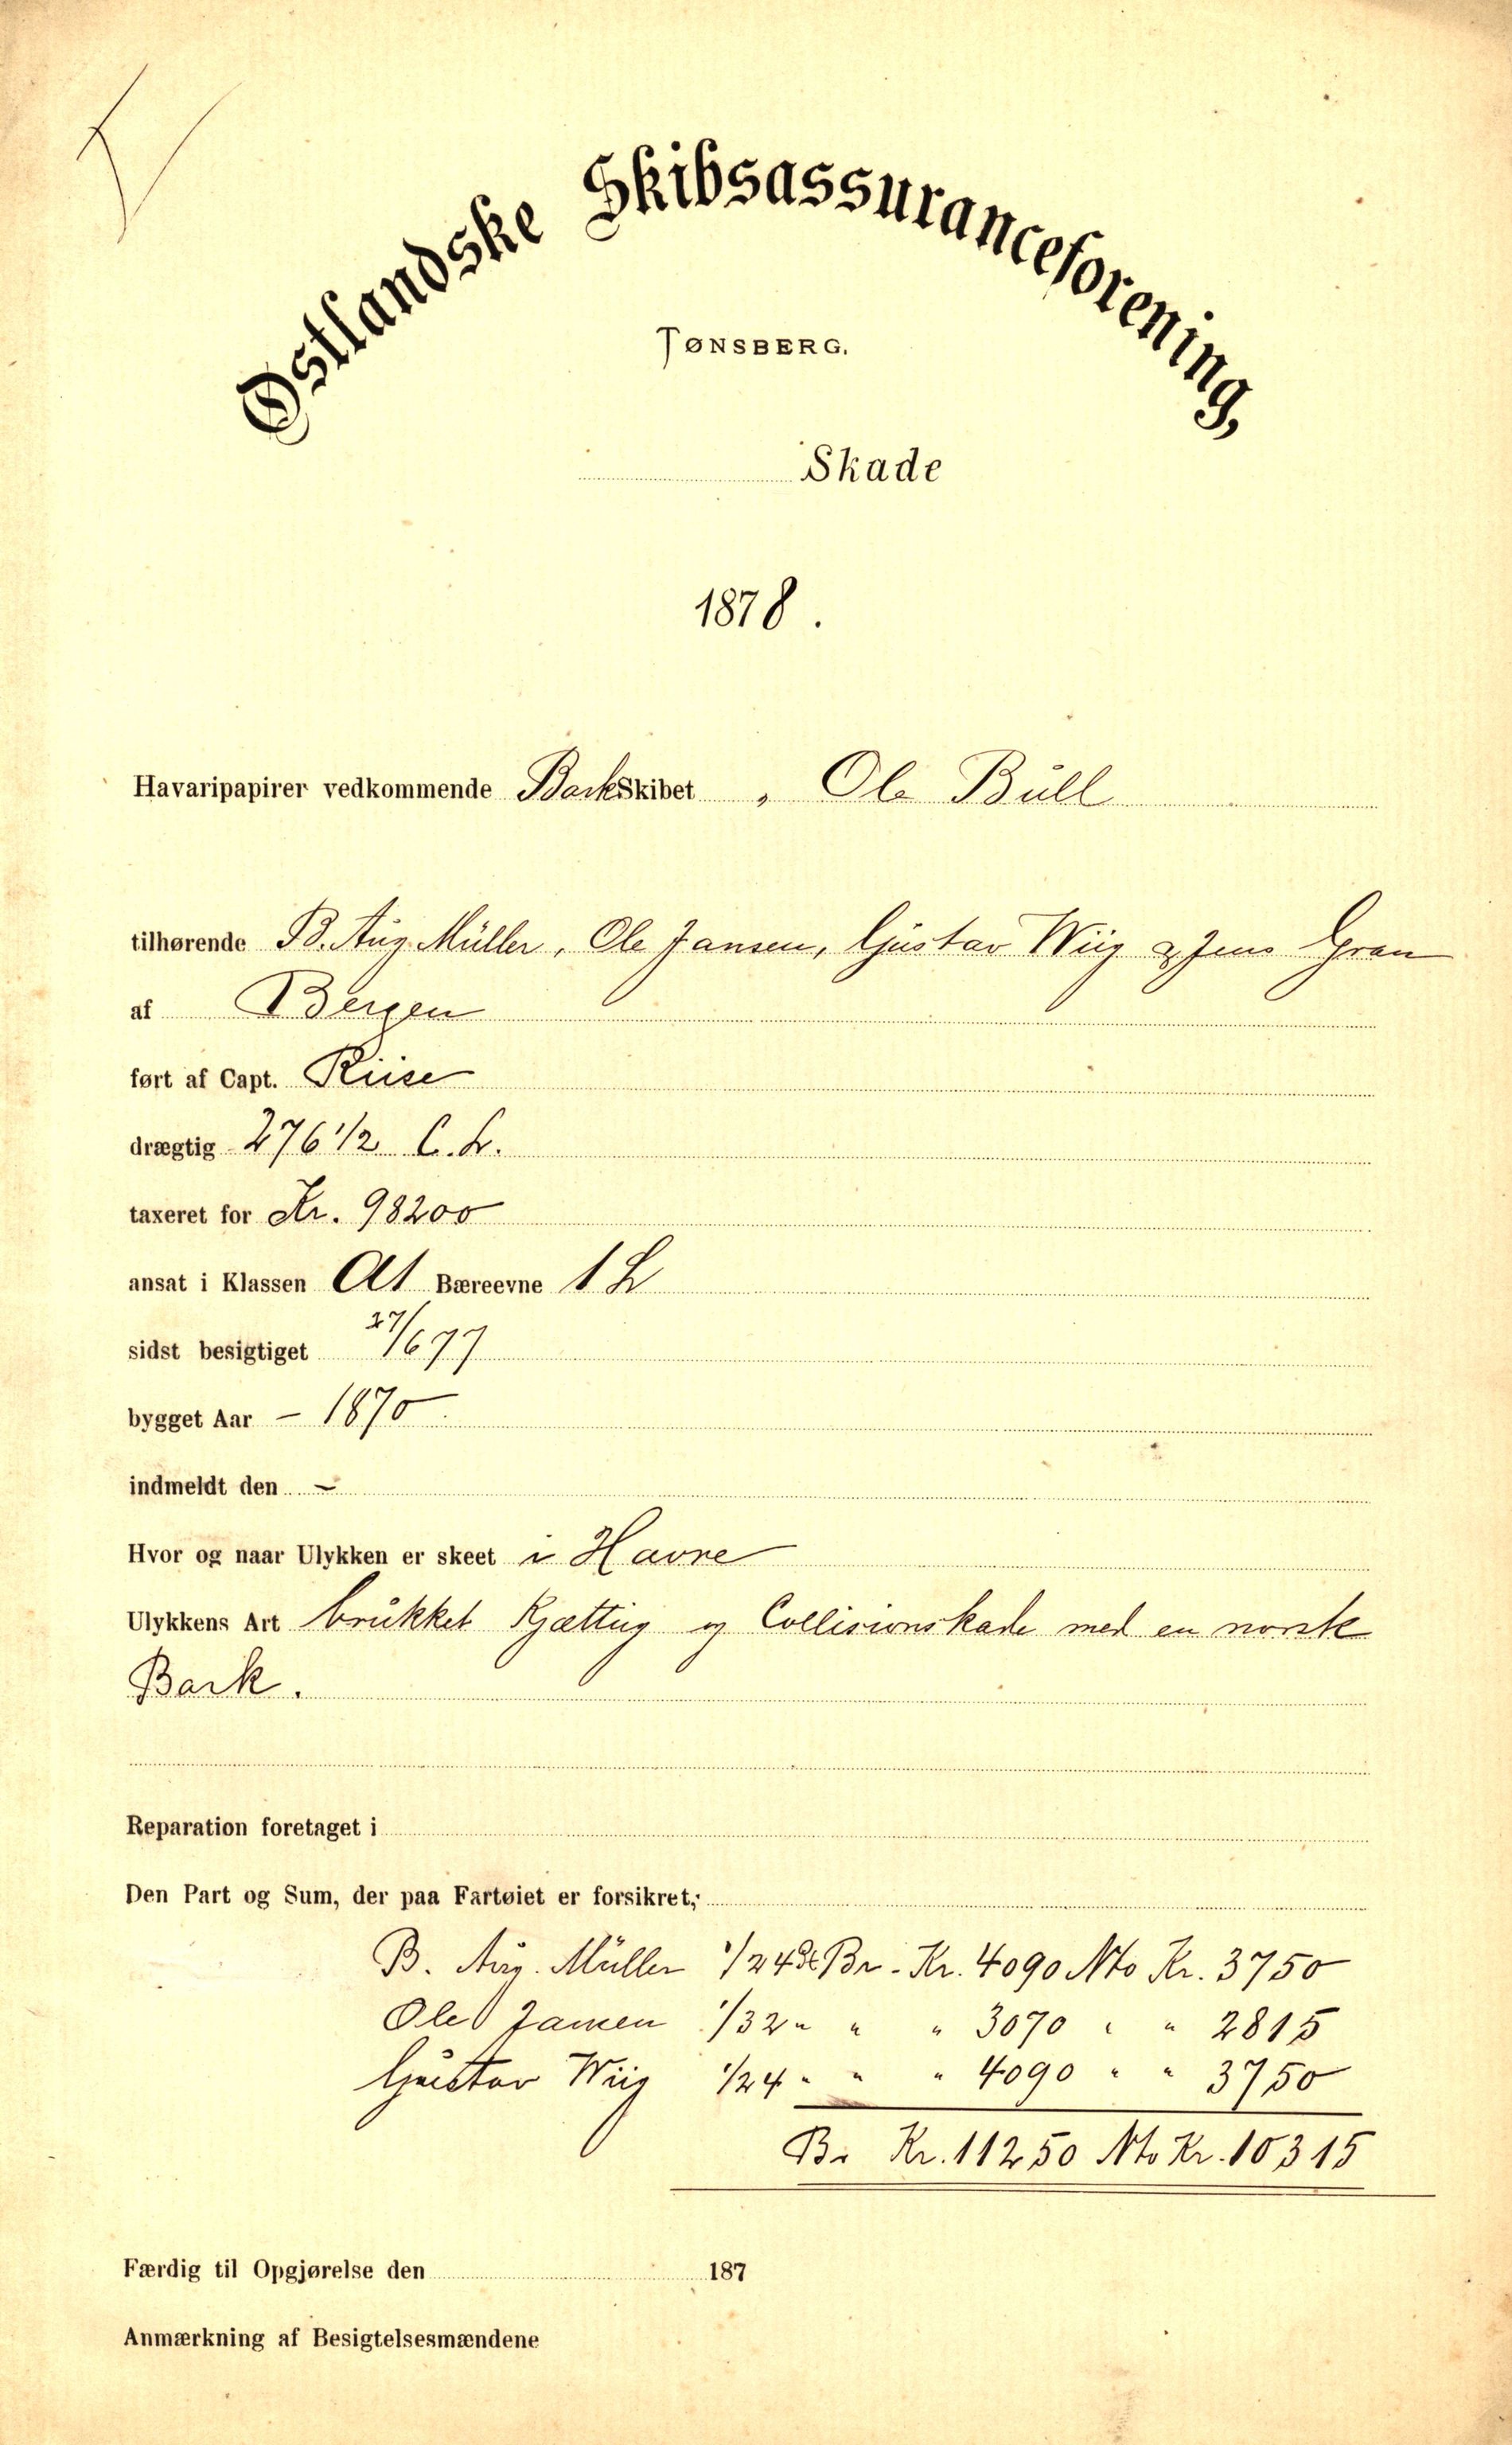 Østlandske Skibsassuranceforening,
TØNSBERG.
Skade
1878.
Havaripapirer vedkommende Barkskibet „ Ole Bull
tilhørende B. Aug. Müller, Ole Jansen, Gustav Wiig og Jens Gran
af Bergen
ført af Capt. Riise
drægtig 276 1/2 C. L.
taxeret for Kr. 98200
ansat i Klassen A1 Bæreevne 1 L
sidst besigtiget 27/6 77
bygget Aar – 1870
indmeldt den –
Hvor og naar Ulykken er skeet i Havre
Ulykkens Art brukket Kjætting og Collisionskade med en norsk
Bark.
Reparation foretaget i
Den Part og Sum, der paa Fartøiet er forsikret,
B. Aug. Müller 1/24 Br. Kr. 4090 Nto Kr. 3750
Ole Jansen 1/32 " " " 3070 " " 2815
Gustav Wiig 1/24 " " " 4090 " " 3750
Br Kr. 11250 Nto Kr. 10315
Færdig til Opgjørelse den 187
Anmærkning af Besigtelsesmændene